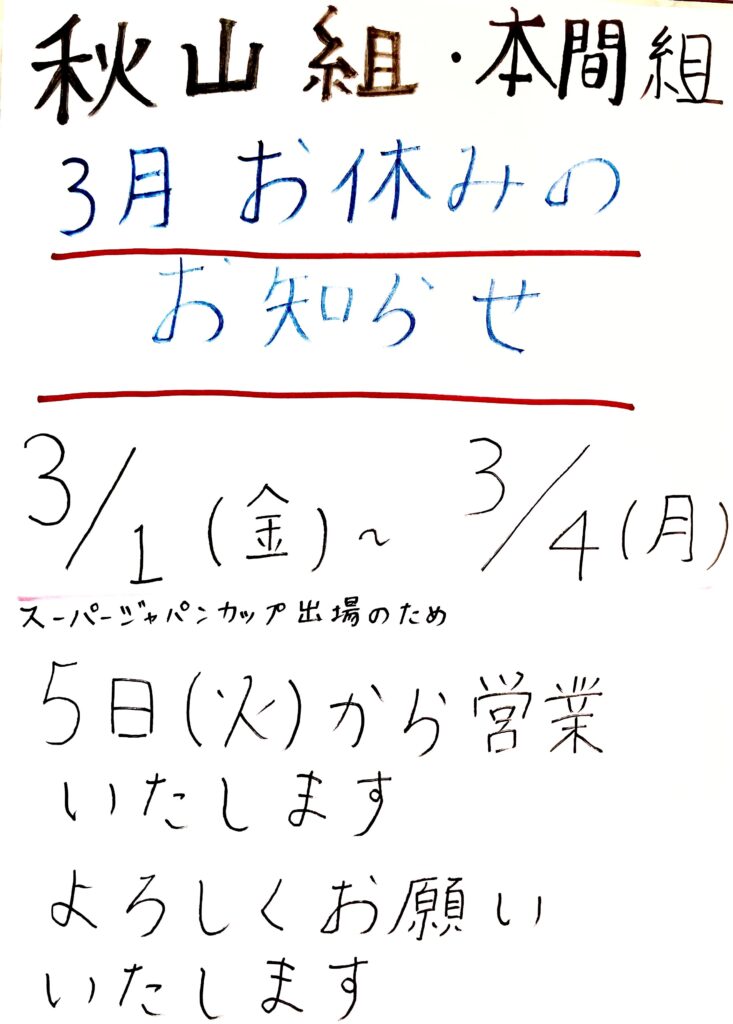 秋山組・本間組
3月お休みの
お知らせ
3/1(金)~3/4(月)
スーパージャパンカップ出場のため
5日(火)から営業
いたします
よろしくお願い
いたします